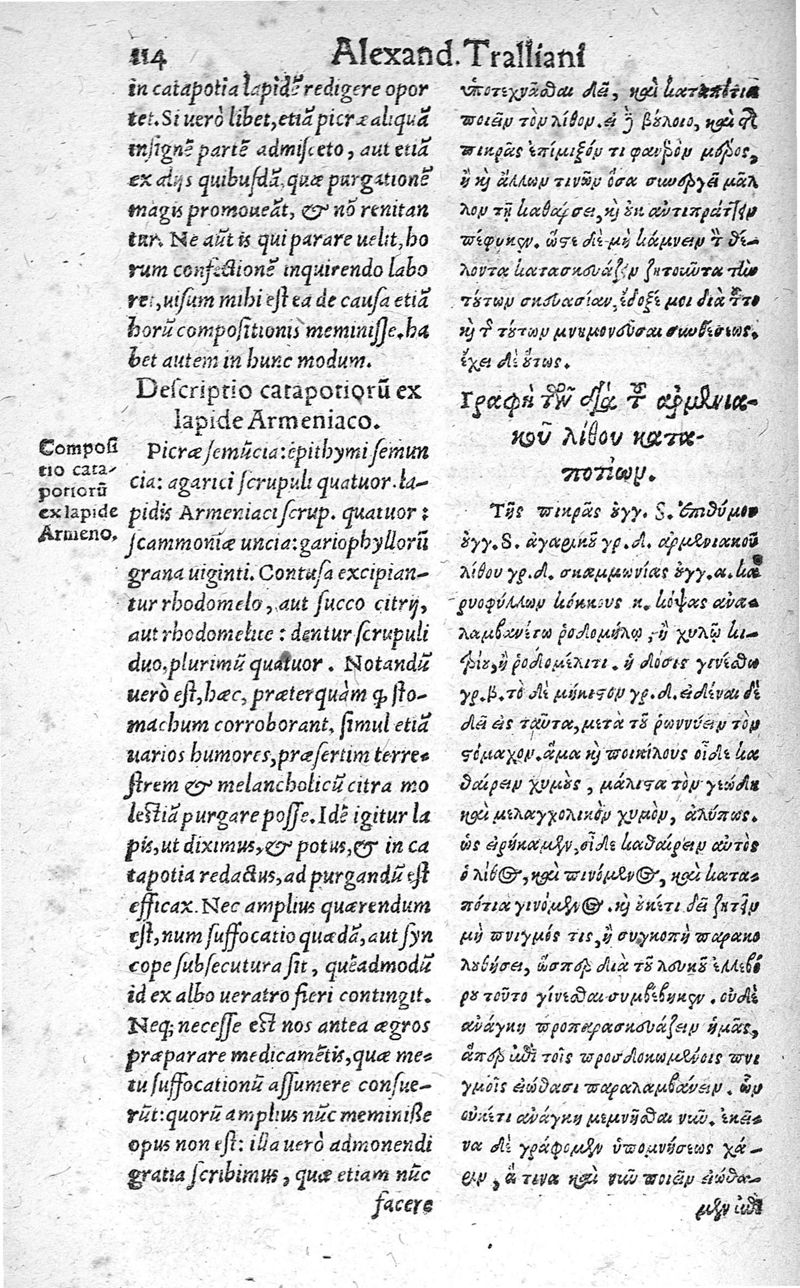 114 Alexand. Tralliani
in catapotia lapidẽ redigere opor
tet. Si uerò libet, etiã picræ aliquã
insignẽ partẽ admisceto, aut etiã
ex alijs quibusdã, quæ purgationẽ
magis promoueãt, & nõ renitan
tur. Ne aũt is qui parare uelit, ho
rum confectionẽ inquirendo labo
ret, uisum mihi est ea de causa etiã
horũ compositionis meminisse. ha
bet autem in hunc modum.
Descriptio catapotiorũ ex
lapide Armeniaco.
Composi
tio cata-
potiorũ
ex lapide
Armeno.
Picræ semũcia: epithymi semun
cia: agarici scrupuli quatuor. la-
pidis Armeniaci scrup. quatuor:
scammoniæ uncia: gariophyllorũ
grana uiginti. Contusa excipian-
tur rhodomelo, aut succo citrij,
aut rhodomelite: dentur scrupuli
duo, plurimũ quatuor. Notandũ
uerò est, hæc, præterquàm ꝙ sto-
machum corroborant, simul etiã
uarios humores, præsertim terre-
strem & melancholicũ citra mo
lestiã purgare posse. Idẽ igitur la
pis, ut diximus, & potus, & in ca
tapotia redactus, ad purgandũ est
efficax. Nec amplius quærendum
est, num suffocatio quædã, aut syn
cope subsecutura sit, quẽadmodũ
id ex albo ueratro fieri contingit.
Neqꝫ necesse est nos antea ægros
præparare medicamẽtis, quæ me-
tu suffocationũ assumere consue-
rũt: quorũ amplius nũc meminisse
opus non est: illa uerò admonendi
gratia scribimus, quæ etiam nũc
facere
ὑποτεχνᾶσθαι δεῖ, καὶ καταπότια
ποιεῖν τὸν λίθον. εἰ δὲ βούλοιο, καὶ τῆς
πικρᾶς ἐπίμιξόν τι φανερὸν μέρος,
ἢ καὶ ἄλλων τινῶν ὅσα συνεργεῖ μᾶλ
λον τῇ καθάρσει, καὶ οὐκ ἀντιπράττειν
πέφυκεν. ὥστε δὲ μὴ κάμνειν τὸν θέ-
λοντα κατασκευάζειν ζητοῦντα τὴν
τούτων σκευασίαν, ἔδοξέ μοι διὰ τοῦτο
καὶ τῆς τούτων μνημονεῦσαι συνθέσεως.
ἔχει δὲ οὕτως.
Γραφὴ τῶν διὰ τοῦ ἀρμενια-
κοῦ λίθου κατα-
ποτίων.
Τῆς πικρᾶς οὐγγ. S. ἐπιθύμου
οὐγγ. S. ἀγαρικοῦ γρ. δ. ἀρμενιακοῦ
λίθου γρ. δ. σκαμμωνίας οὐγγ. α. κα
ρυοφύλλων κόκκους κ. κόψας ἀνα-
λαμβανέτω ῥοδομήλῳ, ἢ χυλῷ κι-
τρίου, ἢ ῥοδομέλιτι. ἡ δόσις γινέσθω
γρ. β. τὸ δὲ μήκιστον γρ. δ. εἰδέναι δὲ
δεῖ εἰς ταῦτα, μετὰ τοῦ ῥωννύειν τὸν
στόμαχον. ἅμα καὶ ποικίλους οἶδε κα
θαίρειν χυμοὺς, μάλιστα τὸν γεώδη
καὶ μελαγχολικὸν χυμὸν, ἀλύπως.
ὡς εἰρήκαμεν, οἶδε καθαίρειν αὐτὸς
ὁ λίθος, καὶ πινόμενος, καὶ κατα-
πότια γινόμενος. καὶ οὐκέτι δεῖ ζητεῖν
μὴ πνιγμός τις, ἢ συγκοπὴ παρακο
λουθήσει, ὥσπερ διὰ τοῦ λευκοῦ ἐλλεβό
ρου τοῦτο γίνεσθαι συμβέβηκεν. οὐδὲ
ἀνάγκη προπαρασκευάζειν ἡμᾶς,
ἅπερ ἐπὶ τοῖς προσδοκωμένοις πνι
γμοῖς εἰώθασι παραλαμβάνειν. ὧν
οὐκέτι ἀνάγκη μεμνῆσθαι νῦν. ἐκεῖ-
να δὲ γράφομεν ὑπομνήσεως χά-
ριν, ἅ τινα καὶ νῦν ποιεῖν εἰώθα-
μεν ἐπὶ